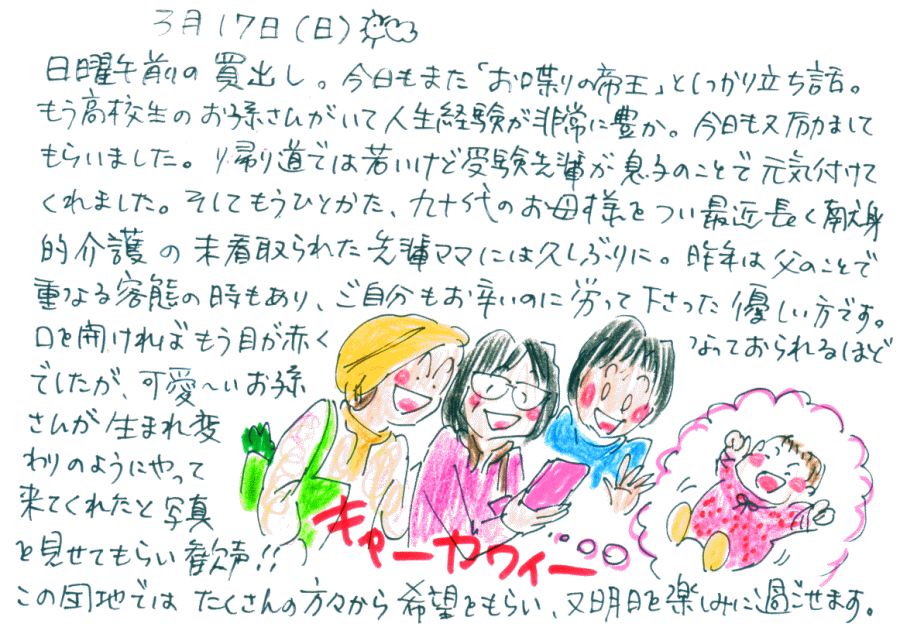 3月17日(日)
日曜午前の買出し。今日もまた「お口喋りの帝王」としっかり立ち話。
もう高校生のお孫さんがいて人生経験が非常に豊か。今日も又励まして
もらいました。帰り道では若いけど受験先輩が息子のことで元気付けて
くれました。そしてもうひとかた、九十代のお母様をつい最近長く献身
的介護の末看取られた先輩ママには久しぶりに。昨年は父のことで
重なる容態の時もあり、ご自分もお辛いのに労って下さった優しい方です。
口を開ければもう目が赤く
なっておられるほど
でしたが、可愛〜いお孫
さんが生まれ変
わりのようにやって
来てくれたと写真
を見せてもらい歓声!!
キャーカワィー
この団地ではたくさんの方々から希望をもらい、又明日を楽しみに過ごせます。